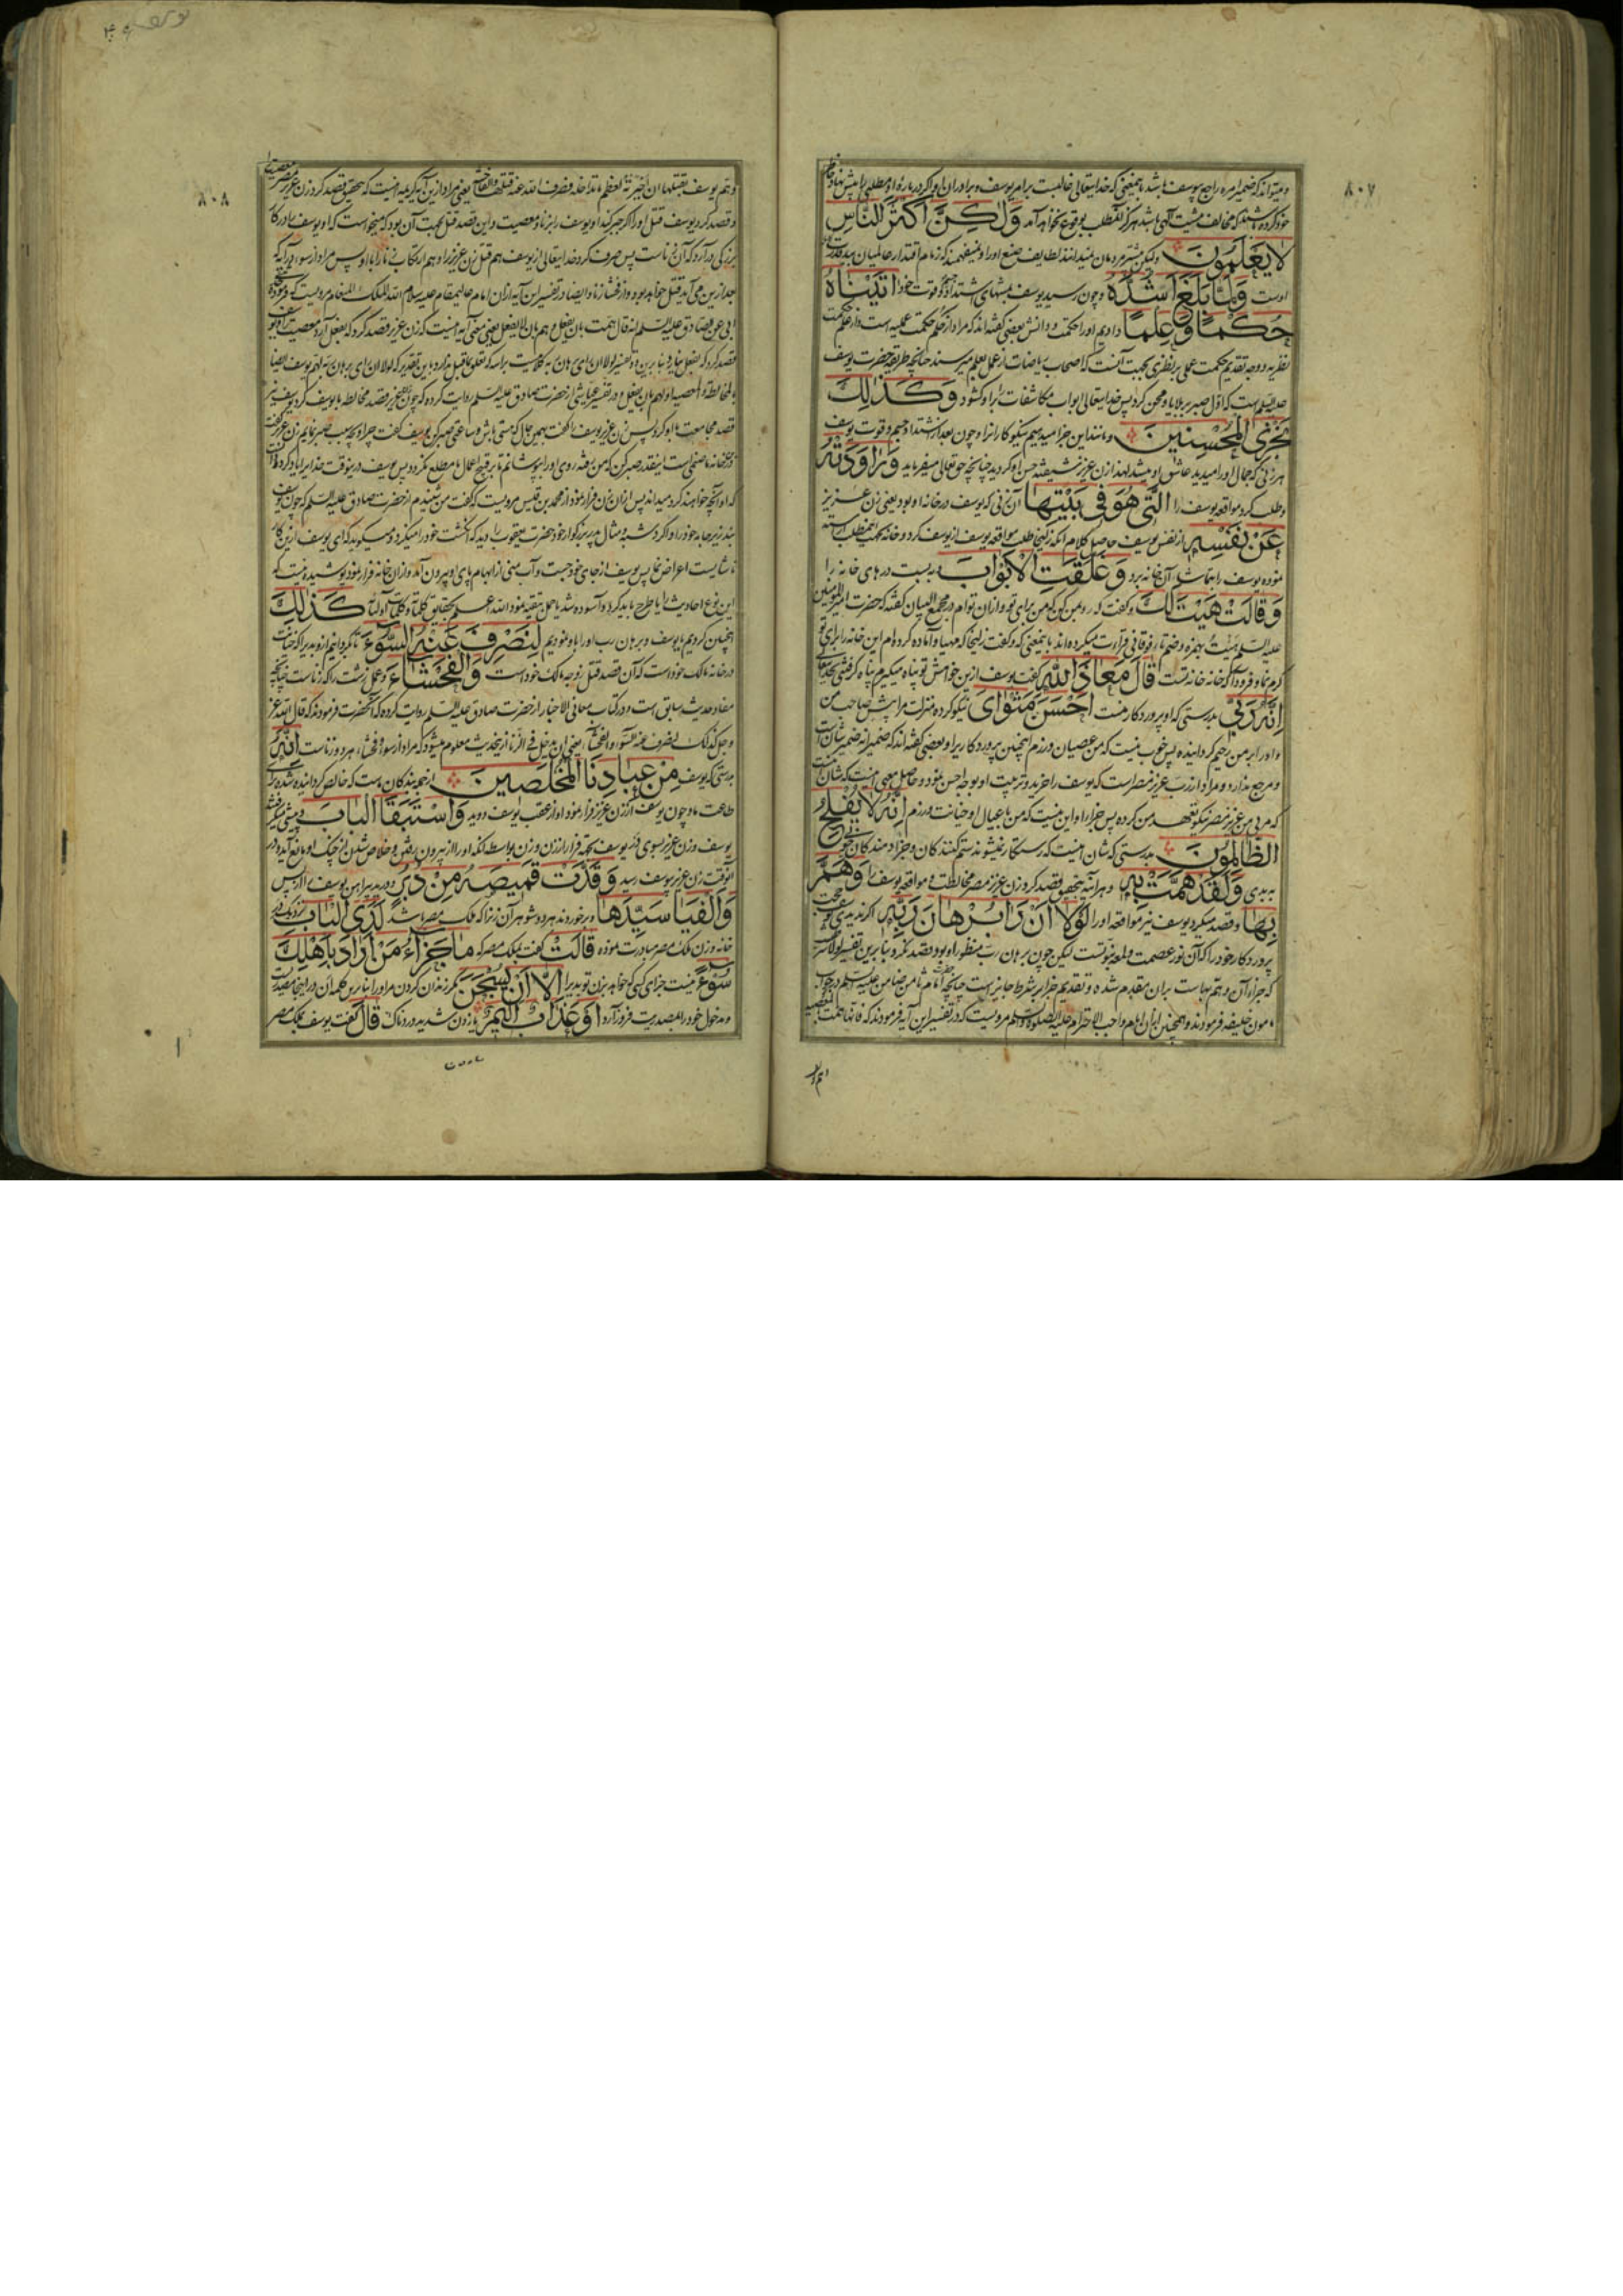 ٨٠٧
و میتواند که ضمیر امره راجع بیوسف باشد باینمعنی که خدایتعالی غالبست برامر یوسف و برادران او اگر درباره او مطلبی را پیش نهاد خاطر
خود کرده باشند که مخالف مشیت آلهی باشد هرگز آنمطلب بوقوع نخواهد آمد وَلٰكِنَّ اَكْثَرَ النَّاسِ
لَا يَعْلَمُونَ ولیکن بیشتر مردمان نمیدانند لطایف صنع او را و نمیفهمند که زمام اقتدار عالمیان بید قدرت
اوست وَلَمَّا بَلَغَ اَشُدَّهُ و چون رسید یوسف بمنتهای اشتداد و قوت خود اٰتَيْنَاهُ
حُكْمًا وَعِلْمًا دادیم او را حکمت و دانش بعضی گفته‌اند که مراد از حکم حکمت عملیه است و از علم حکمت
نظریه و وجه تقدیم حکمت عملی بر نظری بجهت آنست که اصحاب ریاضات از عمل بعلم میرسند چنانچه طریقه حضرت یوسف
علیه السلم است که اول صبر بر بلایا و محن کرد پس خدایتعالی ابواب مکاشفات را بر او گشود وَكَذٰلِكَ
نَجْزِى الْمُحْسِنِينَ و مانند این جزا میدهیم نیکوکارانرا و چون بعد از اشتداد جسم و قوت یوسف
هر زنی که جمال او را میدید عاشق او میشد لهذا زن عزیز شیفته حسن او گردید چنانچه حقتعالی میفرماید وَرَاوَدَتْهُ
و طلب کرد مواقعه یوسف را الَّتِى هُوَ فِى بَيْتِهَا آن زنی که یوسف در خانه او بود یعنی زن عزیز
عَنْ نَفْسِهِ از نفس یوسف حاصل کلام آنکه زلیخا طلب مواقعه یوسف از یوسف کرد و خانه بجهت اینمطلب آراسته
نموده یوسف را بتماشای آن خانه برد وَغَلَّقَتِ الْاَبْوَابَ و ببست درهای خانه را
وَقَالَتْ هَيْتَ لَكَ و گفت که رو بمن کن که من برای تو و از آن توام در مجمع البیان گفته که حضرت امیر المؤمنین
علیه السلم هئت بهمزه و ضم تاء فوقانی قرائت میکرده‌اند باینمعنی که و گفت زلیخا که مهیا و آماده کرده‌ام این خانه را برای تو
کرم نما و فرود آ که خانه خانه تست قَالَ مَعَاذَ اللهِ گفت یوسف ازین خواهش تو پناه میگیرم پناه گرفتنی بخدایتعالی
اِنَّهُ رَبِّى بدرستی که او پروردگار منست اَحْسَنَ مَثْوَاىَ نیکو کرده منزلت مرا پیش صاحب من
و او را بر من رحیم گردانیده پس خوب نیست که من عصیان ورزم اینچنین پروردگار برا و بعضی گفته‌اند که ضمیر انه ضمیر شانست
و مرجع ندارد و مراد از رب عزیز مصر است که یوسف را خرید و تربیت او بوجه احسن نمود و حاصل معنی اینست که شان اینست
که مربی من عزیز مصر نیکو تعهد من کرده پس جزاء او این نیست که من با عیال او خیانت ورزم اِنَّهُ لَا يُفْلِحُ
الظَّالِمُونَ بدرستی که شان اینست که رستگار نمیشوند ستم کنندکان و جزا دهندکان خوبی
به بدی وَلَقَدْ هَمَّتْ بِهِ و هر آینه بتحقیق قصد کرد زن عزیز مصر مخالطت و مواقعه یوسف را وَهَمَّ
بِهَا و قصد میکرد یوسف نیز مواقعه او را لَوْلَا اَنْ رَاٰ بُرْهَانَ رَبِّهِ اگر ندیدی یوسف حجت
پروردگار خود را که آن نور عصمت و لمعه نبوتست لیکن چون برهان رب منظور او بود قصد نکرد و بنابرین تفسیر لولا
که جزاء آن و هم بها است بران مقدم شده و تقدیم جزا بر شرط جایز است چنانچه امام ثامن ضامن علیه السلم در جواب
مامون خلیفه فرمودند و همچنین از آن امام واجب الاحترام علیه الصلوة والسلم مرویست که در تفسیر این آیه فرمودند که فانها همت بالمعصیة
و هم یوسف
٨٠٨
و هم یوسف بقتلها ان اجبرته لعظم ما تداخله فصرف الله عنه قتلها والفاحشة یعنی مراد ازین آیه کریمه اینست که بتحقیق قصد کرد زن عزیز مصر معصیت را
و قصد کرد یوسف قتل او را اگر جبر کند او یوسف را بزنا و معصیت و این قصد قتل بجهت آن بود که میخواست که او یوسف را در کار
بزرگی در آرد که آن زناست پس صرف کرد خدایتعالی از یوسف هم قتل زن عزیز را و هم ارتکاب زنا را با او پس مراد از سوء در آیه که
بعد ازین می آید قتل خواهد بود و از فحشا زنا و ایضا در تفسیر این آیه از آن امام عالیمقام علیه سلام الله الملک العلام مرویست که
ابی عن الصادق علیه السلم انه قال همت بان تفعل و هم بان لا یفعل یعنی معنی آیه اینست که زن عزیز قصد کرد که بفعل آرد معصیت را و یوسف
قصد کرد که بفعل نیارد
قصد مجامعت با او کرد پس زن عزیز بیوسف گفت بهمین حال که هستی باش و ساعتی صبر کن یوسف گفت چرا و بچه سبب صبر نمایم زن عزیز گفت
در خانه ما صنمی است اینقدر صبر کن که من بروم و روی او را بپوشانم تا بر قبیح اعمال ما مطلع نگردد پس یوسف در ینوقت خدا را یاد کرد و دانست
که او آنچه خواهند کرد میداند پس از آن زن فرار نمود از محمد بن قیس مرویست که گفت من شنیدم از حضرت صادق علیه السلم که چون یوسف
بند زیر جامه خود را وا کرد شبه و مثال پدر بزرگوار خود حضرت یعقوب را دید که انگشت خود را میگزد و میگوید که ای یوسف ازین کار
ناشایست اعراض نما پس یوسف از جای خود جست و آب منی از ابهام پای او بیرون آمد و از آن خانه فرار نمود پوشیده نیست که
این نوع احادیث را یا طرح باید کرد و آسوده شد یا حمل بتقیه نمود الله اعلم بحقایق کلماته و کلمات اولیائه كَذٰلِكَ
اینچنین کردیم با یوسف و برهان رب او را باو نمودیم لِنَصْرِفَ عَنْهُ السُّوءَ تا بگردانیم ازو بدیرا که خیانت
در خانه مالک خود است که آن قصد قتل زوجه مالک خود است وَالْفَحْشَاءَ و عمل زشت را که زناست چنانچه
مفاد حدیث سابق است و در کتاب معانی الاخبار از حضرت صادق علیه السلم روایت کرده که آنحضرت فرمودند که قال الله عز
و جل کذلک لنصرف عنه السوء والفحشاء یعنی ان یدخل فی الزنا ازینحدیث معلوم میشود که مراد از سوء و فحشاء هر دو زناست اِنَّهُ
بدرستی که یوسف مِنْ عِبَادِنَا الْمُخْلَصِينَ از جمله بندکان ماست که خالص گردانیده شده برای
طاعت ما و چون یوسف از زن عزیز فرار نمود او از عقب یوسف دوید وَاسْتَبَقَا الْبَابَ و پیشی گرفتند
یوسف و زن عزیز بسوی در یوسف بجهة فرار از زن و زن بواسطه آنکه او را از بیرون رفتن و خلاص شدن از چنک او مانع آید و در
آنوقت زن عزیز بیوسف رسید وَقَدَّتْ قَمِيصَهُ مِنْ دُبُرٍ و درید پیراهن یوسف را از پس
وَاَلْفَيَا سَيِّدَهَا و برخوردند هر دو شوهر آن زنرا که ملک مصر باشد لَدَى الْبَابِ نزدیک در
خانه و زن ملک مصر مبادرت نموده قَالَتْ گفت بملک مصر که مَا جَزَاءُ مَنْ اَرَادَ بِاَهْلِكَ
سُوءًا نیست جزای کسی که خواهد بزن تو بدیرا اِلَّا اَنْ يُسْجَنَ مگر زندان کردن مر او را بنابرین کلمه ان در اینجا مصدریست
و مدخول خود را بمصدریت فرود آرد اَوْ عَذَابٌ اَلِيمٌ یا زدن شدید دردناک قَالَ گفت یوسف بملک مصر